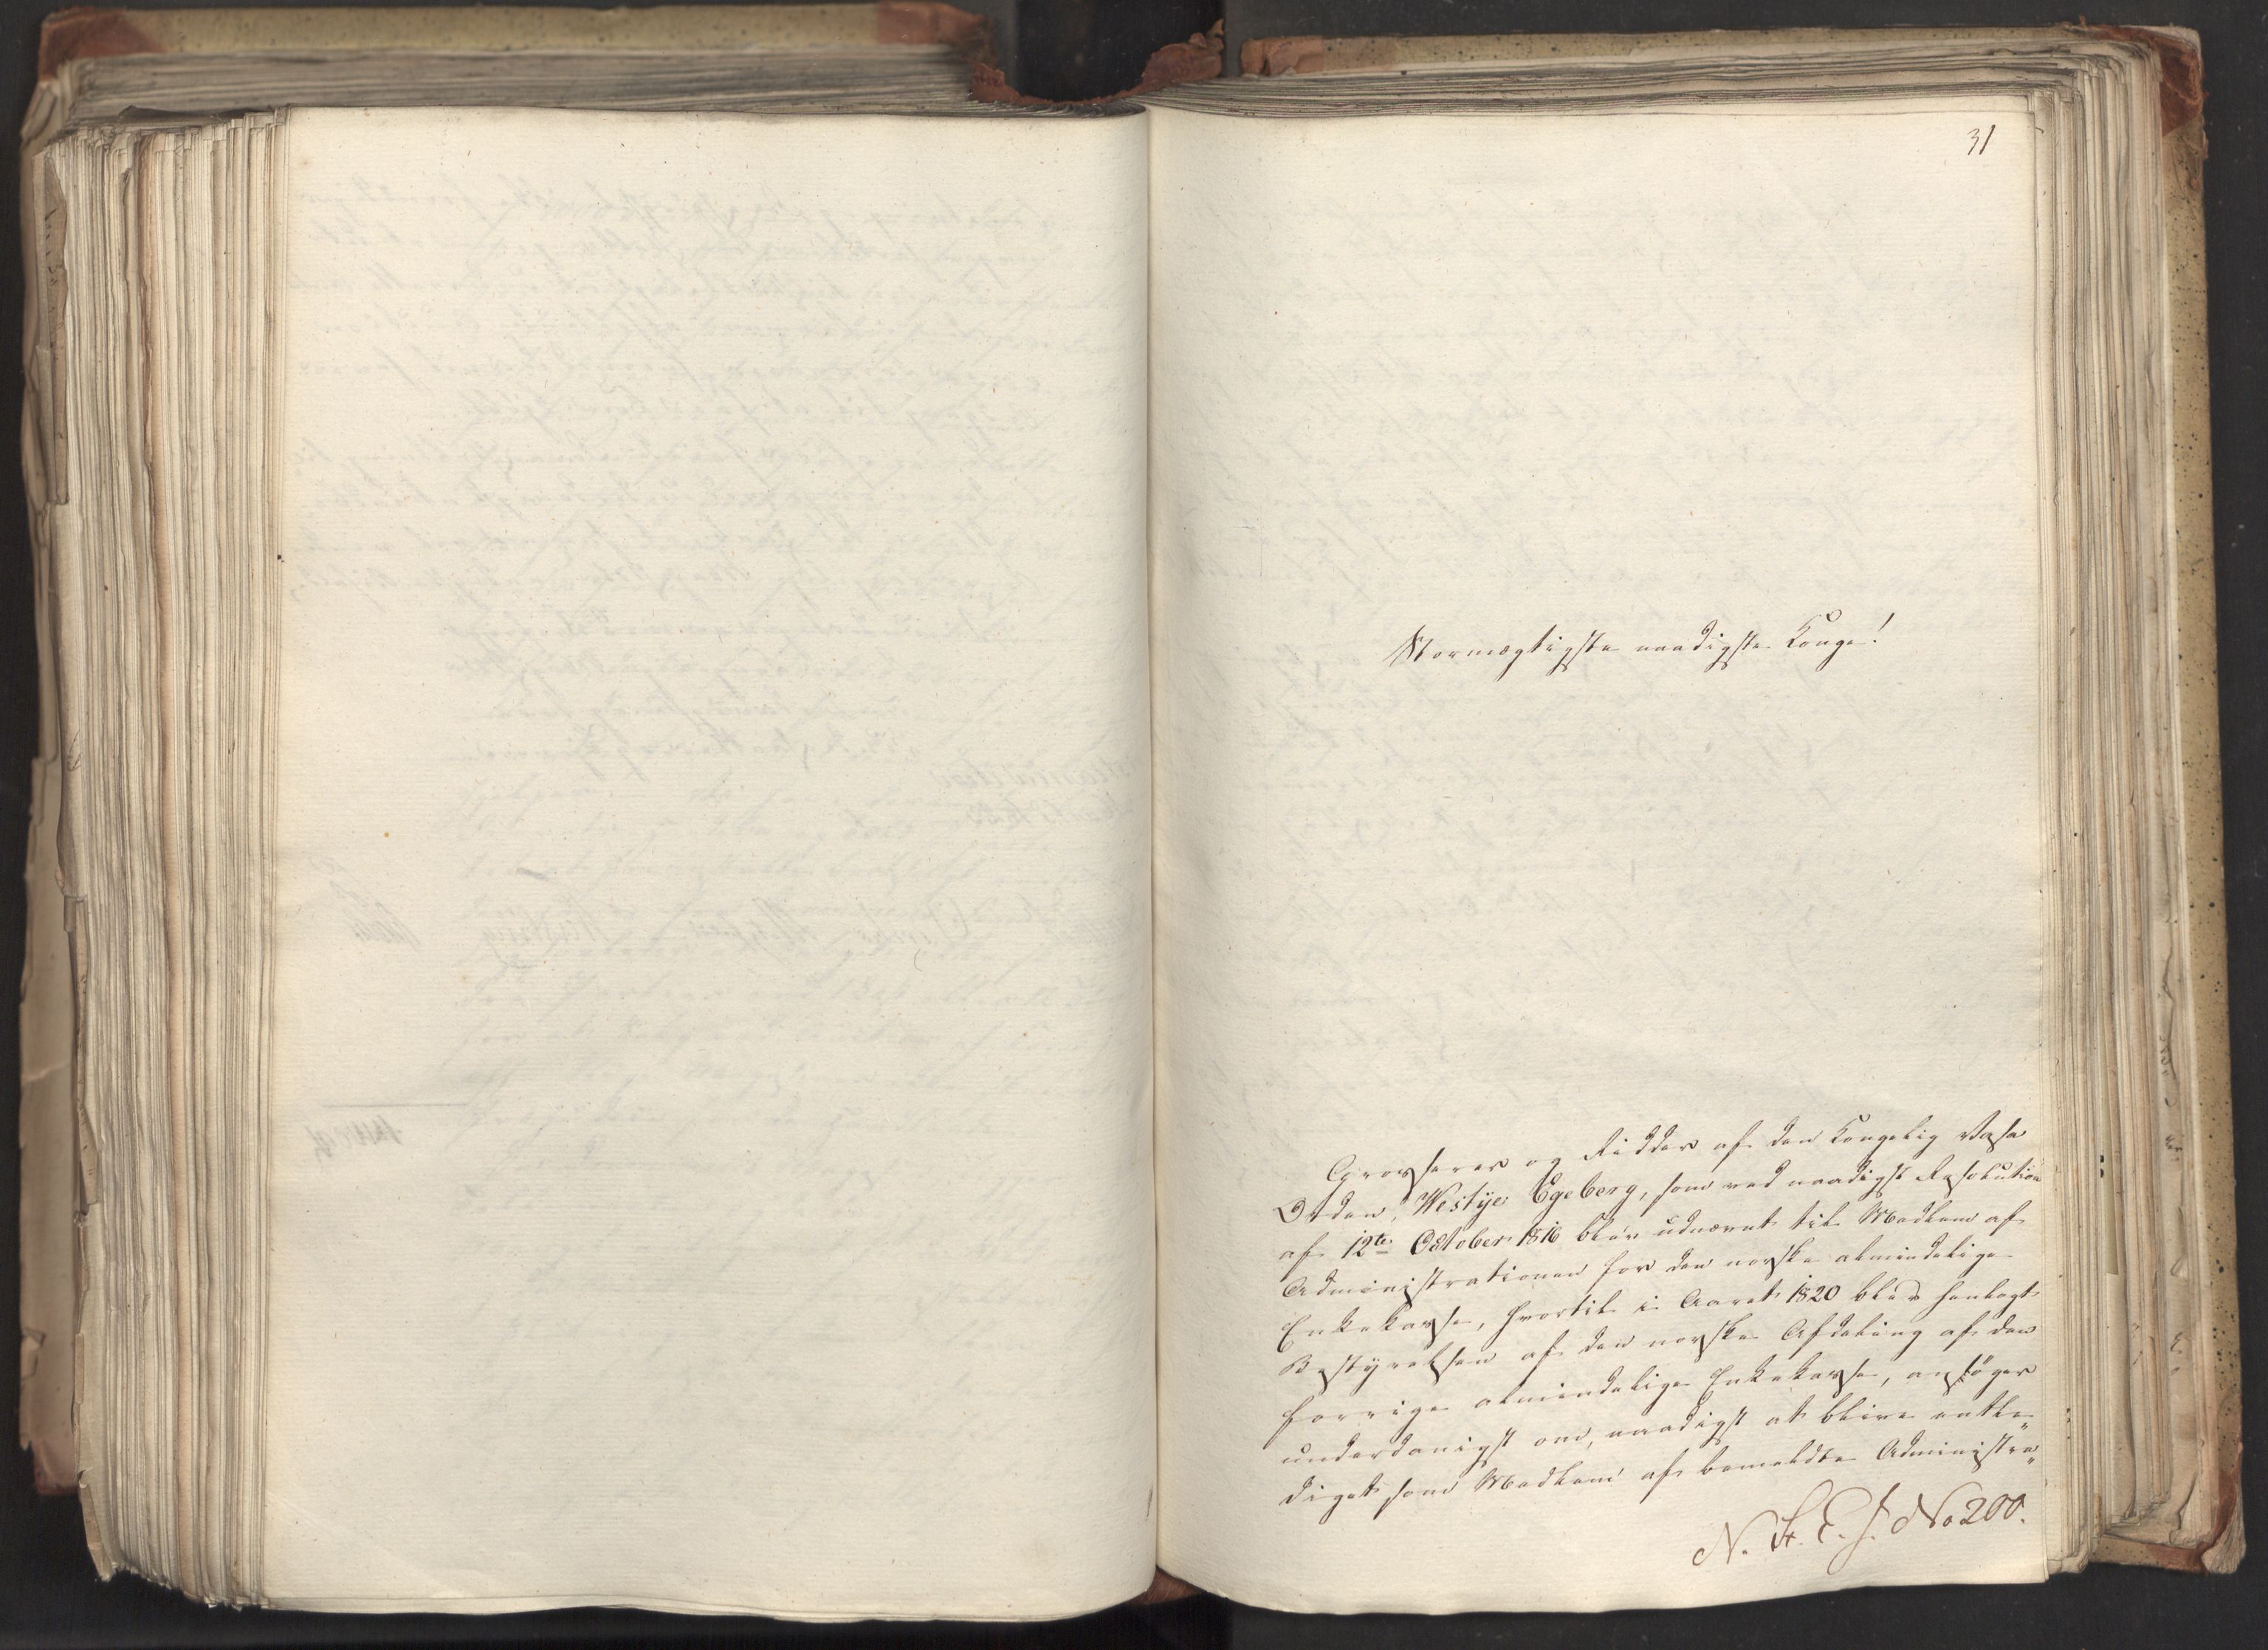 31
Stormægtigste naadigste Konge!
Grosserer og Ridder af den Kongelig Vasa
Orden, Westye Egeberg, som ved naadigst Resolution
af 12te October 1816 blev udnævnt til Medlem af
Administrationen for den norske almindelige
Enkekasse, hvortil i Aaret 1820 blev henlagt
Bestyrelsen af den norske Afdeling af den
forrige almindelige Enkekasse, ansøger
underdanigst om, naadigst at blive entle„
diget som Medlem af bemeldte Administra„
N. St. E. J. No 200.